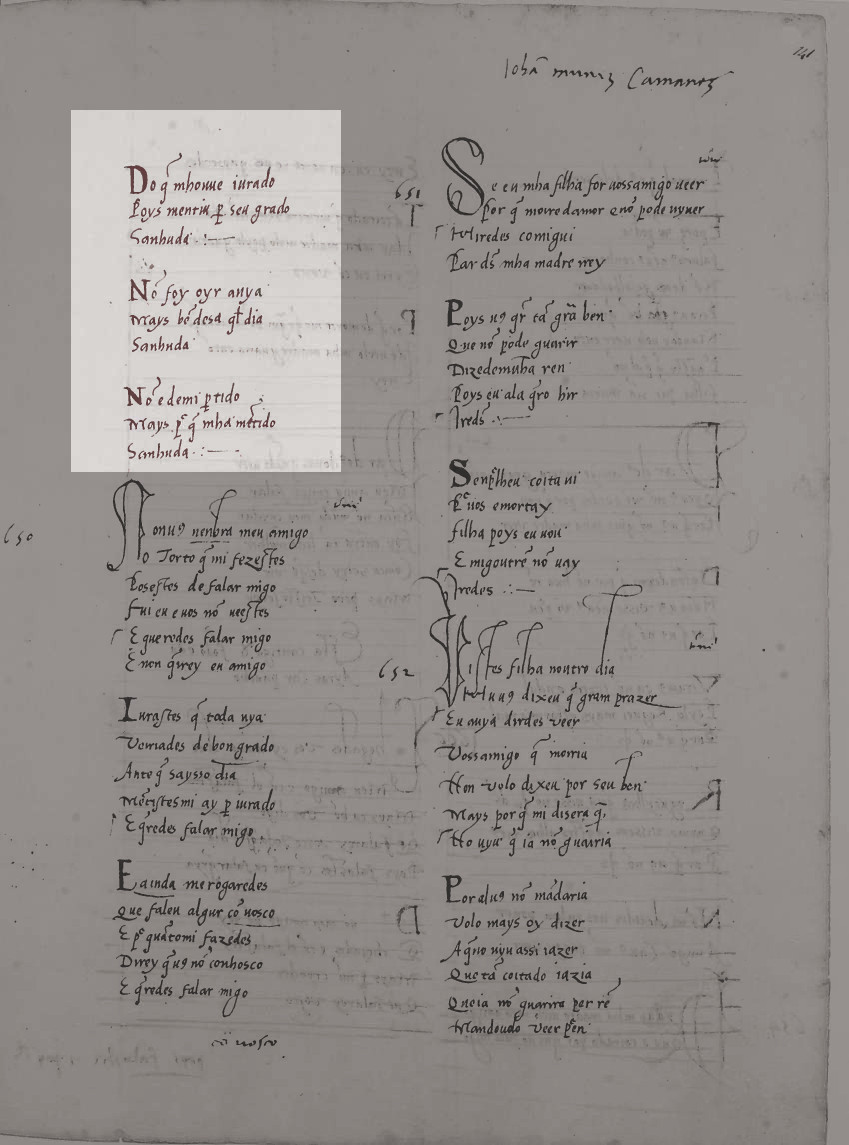 Iohã muniz Camanez
141
Do q̃ mhouue iurado
Poys mentiu ꝑ seu grado
Sanhuda
Nõ foy oyr auya
Mays bẽ desa q̃l dia
Sanhuda
Nõ e demi ꝑtido
Mays ꝑ q̃ mha mẽtido
Sanhuda
650
Nonuꝯ nenbra meu amigo
No Torto q̃ mi fezestes
Posestes de falar migo
Fui eu e uos nõ ueestes
E queredes falar migo
E non q̃rrey eu amigo
Iurastes q̃ toda uya
Verriades de bon grado
Ante q̃ saysso dia
Mẽtistesmi ay ꝑ iurado
E q̃redes falar migo
E ainda me rogaredes
Que faleu algur cõ uosco
E ꝑ quãtomi fazedes
Direy q̃uꝯ nõ conhosco
E q̃redes falar migo
cõ uosco
651
Se eu mha filha for uossamigo ueer
Por q̃ moire damor e nõ pode uyuer
Hiredes comigui
Par ds̃ mha madre irey
Poys uꝯ q̃r tã grã ben
Que nõ pode guarir
Dizedemunha ren
Poys eu ala q̃ro hir
Ireds̃
Senp̃lheu coita ui
P̃ uos e mortay
filha poys eu uou
E migoutrẽ nõ uay
Iredes
652
Vistes filha noutro dia
Hu uꝯ dixeu q̃ gram prazer
Eu auya dirdes ueer
Vossamigo q̃ moiria
Non uolo dixeu por seu ben
Mays por q̃ mi disera q̃
Ho uyu q̃ ia nõ guairia
Por aluꝯ nõ mãdaria
Volo mays oy dizer
A q̃no uyu assi iazer
Que tã coitado iazia
Que ia nõ guarira per rẽ
Mandouolo ueer p̃en